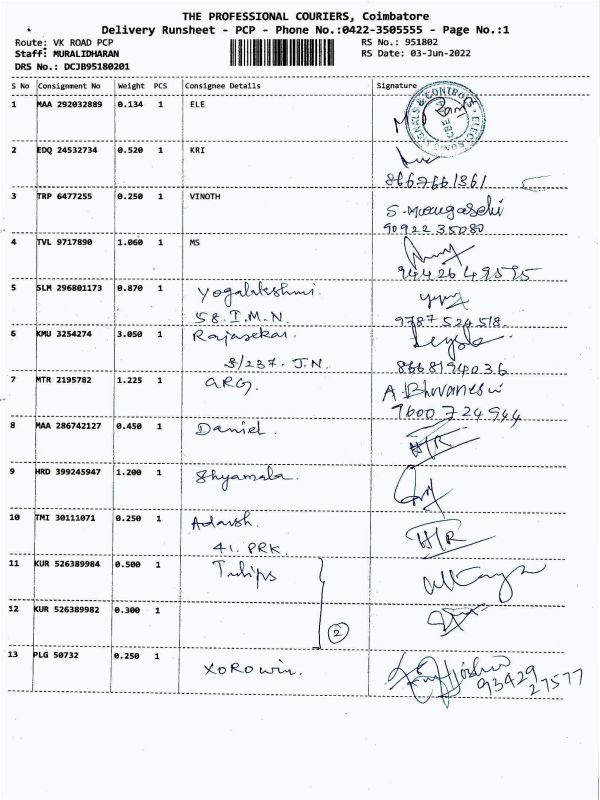 THE PROFESSIONAL COURIERS, Coimbatore
Delivery Runsheet - PCP - Phone No.:0422-3505555 - Page No.:1
Route: VK ROAD PCP RS No.: 951802
Staff: MURALIDHARAN RS Date: 03-Jun-2022
DRS No.: DCJB95180201
S No Consignment No Weight PCS Consignee Details Signature
1 MAA 292032889 0.134 1 ELE
2 EDQ 24532734 0.520 1 KRI
8667661361
3 TRP 6477255 0.250 1 VINOTH
90922 35080
4 TVL 9717890 1.060 1 MS
94426 49595
5 SLM 296801173 0.870 1 Yogalakshmi.
58. I.M.N. 9787 524518.
6 KMU 3254274 3.050 1 Rajasekar.
3/237. J.N. 8668194036
7 MTR 2195782 1.225 1 ARG. A. Bhuvaneswi
7600 724944
8 MAA 286742127 0.450 1 Daniel. H/R
9 HRD 399245947 1.200 1 Shyamala.
10 TMI 30111071 0.250 1 Adarsh. H/R
41. PRK
11 KUR 526389984 0.500 1 Tulips
12 KUR 526389982 0.300 1 2
13 PLG 50732 0.250 1 XOROwin.
93429
27577